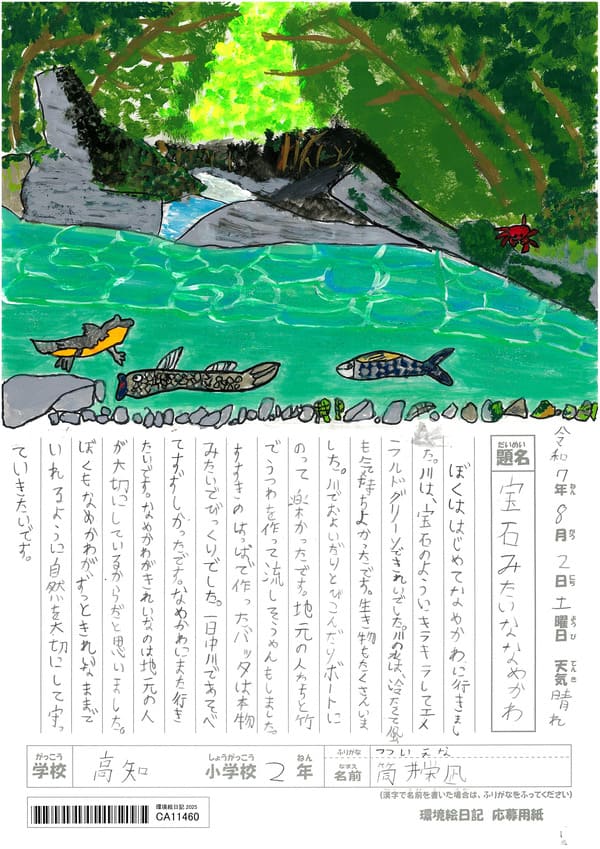 令和7年8月2日土曜日 天気 晴れ
ねん がつ にち ようび てんき
だいめい
題名 宝石みたいななめかわ
ぼくははじめてなめかわに行きまし
た。川は、宝石のようにキラキラしてエメ
ラルドグリーンできれいでした。川の水は、冷たくて風
も気持ちよかったです。生き物もたくさんいま
した。川でおよいだりとびこんだりボートに
のって楽かったです。地元の人たちと竹
でうつわを作って流しそうめんもしました。
すすきのはっぱで作ったバッタは本物
みたいでびっくりでした。一日中川であそべ
てすずしかったです。なめかわにまた行き
たいです。なめかわがきれいなのは地元の人
が大切にしているからだと思いました。
ぼくもなめかわがずっときれいなままで
いれるように自然を大切にして守っ
ていきたいです。
がっこう しょうがっこう ねん ふりがな つついえな
学校 高知 小学校 2年 なまえ 名前 筒井栄凪
(漢字で名前を書いた場合は、ふりがなをふってください)
環境絵日記 2025
CA11460
環境絵日記 応募用紙